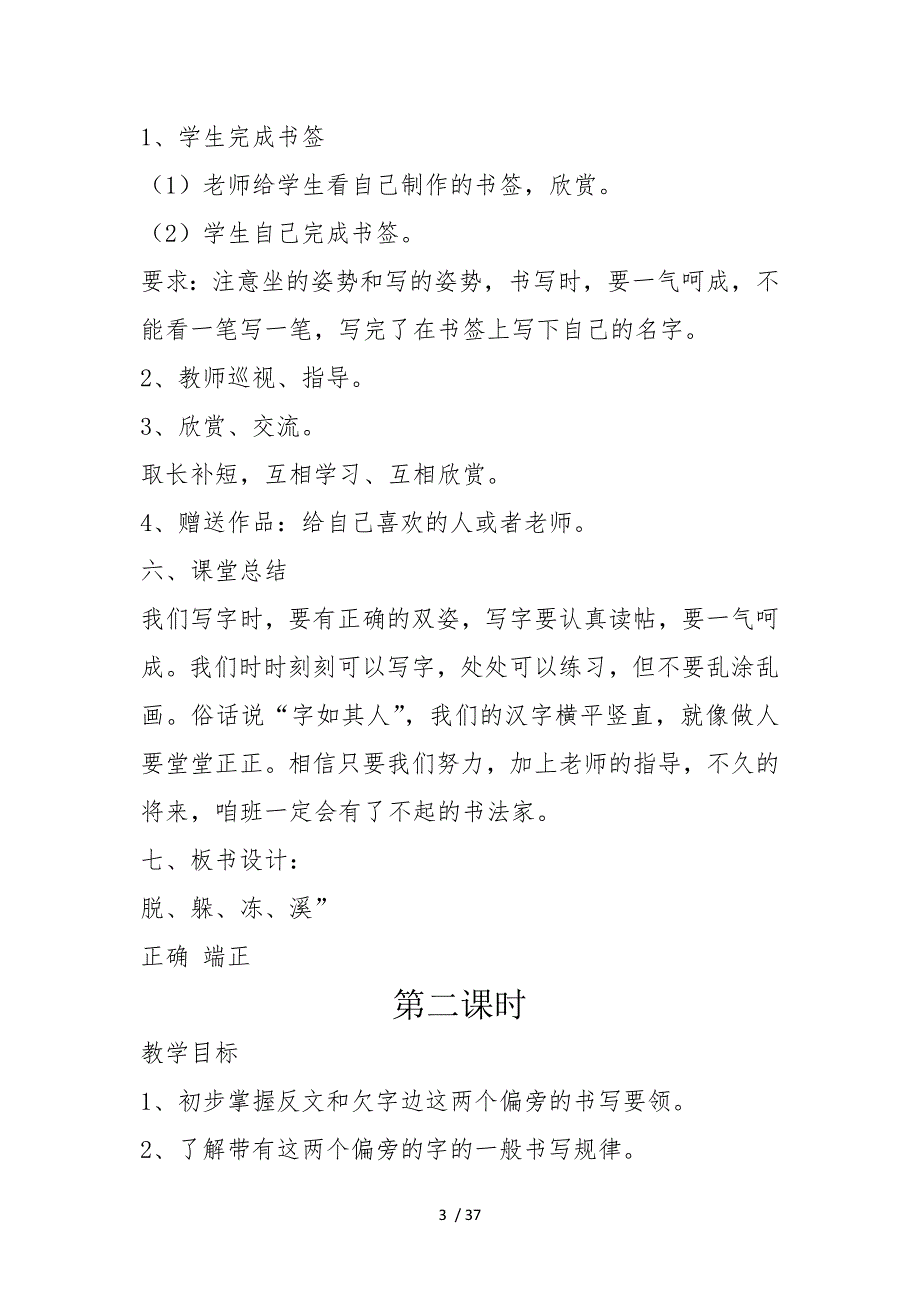 1、学生完成书签
（1）老师给学生看自己制作的书签，欣赏。
（2）学生自己完成书签。
要求：注意坐的姿势和写的姿势，书写时，要一气呵成，不
能看一笔写一笔，写完了在书签上写下自己的名字。
2、教师巡视、指导。
3、欣赏、交流。
取长补短，互相学习、互相欣赏。
4、赠送作品：给自己喜欢的人或者老师。
六、课堂总结
我们写字时，要有正确的双姿，写字要认真读帖，要一气呵
成。我们时时刻刻可以写字，处处可以练习，但不要乱涂乱
画。俗话说“字如其人”，我们的汉字横平竖直，就像做人
要堂堂正正。相信只要我们努力，加上老师的指导，不久的
将来，咱班一定会有了不起的书法家。
七、板书设计：
脱、躲、冻、溪”
正确 端正
第二课时
教学目标
1、初步掌握反文和欠字边这两个偏旁的书写要领。
2、了解带有这两个偏旁的字的一般书写规律。
3 / 37